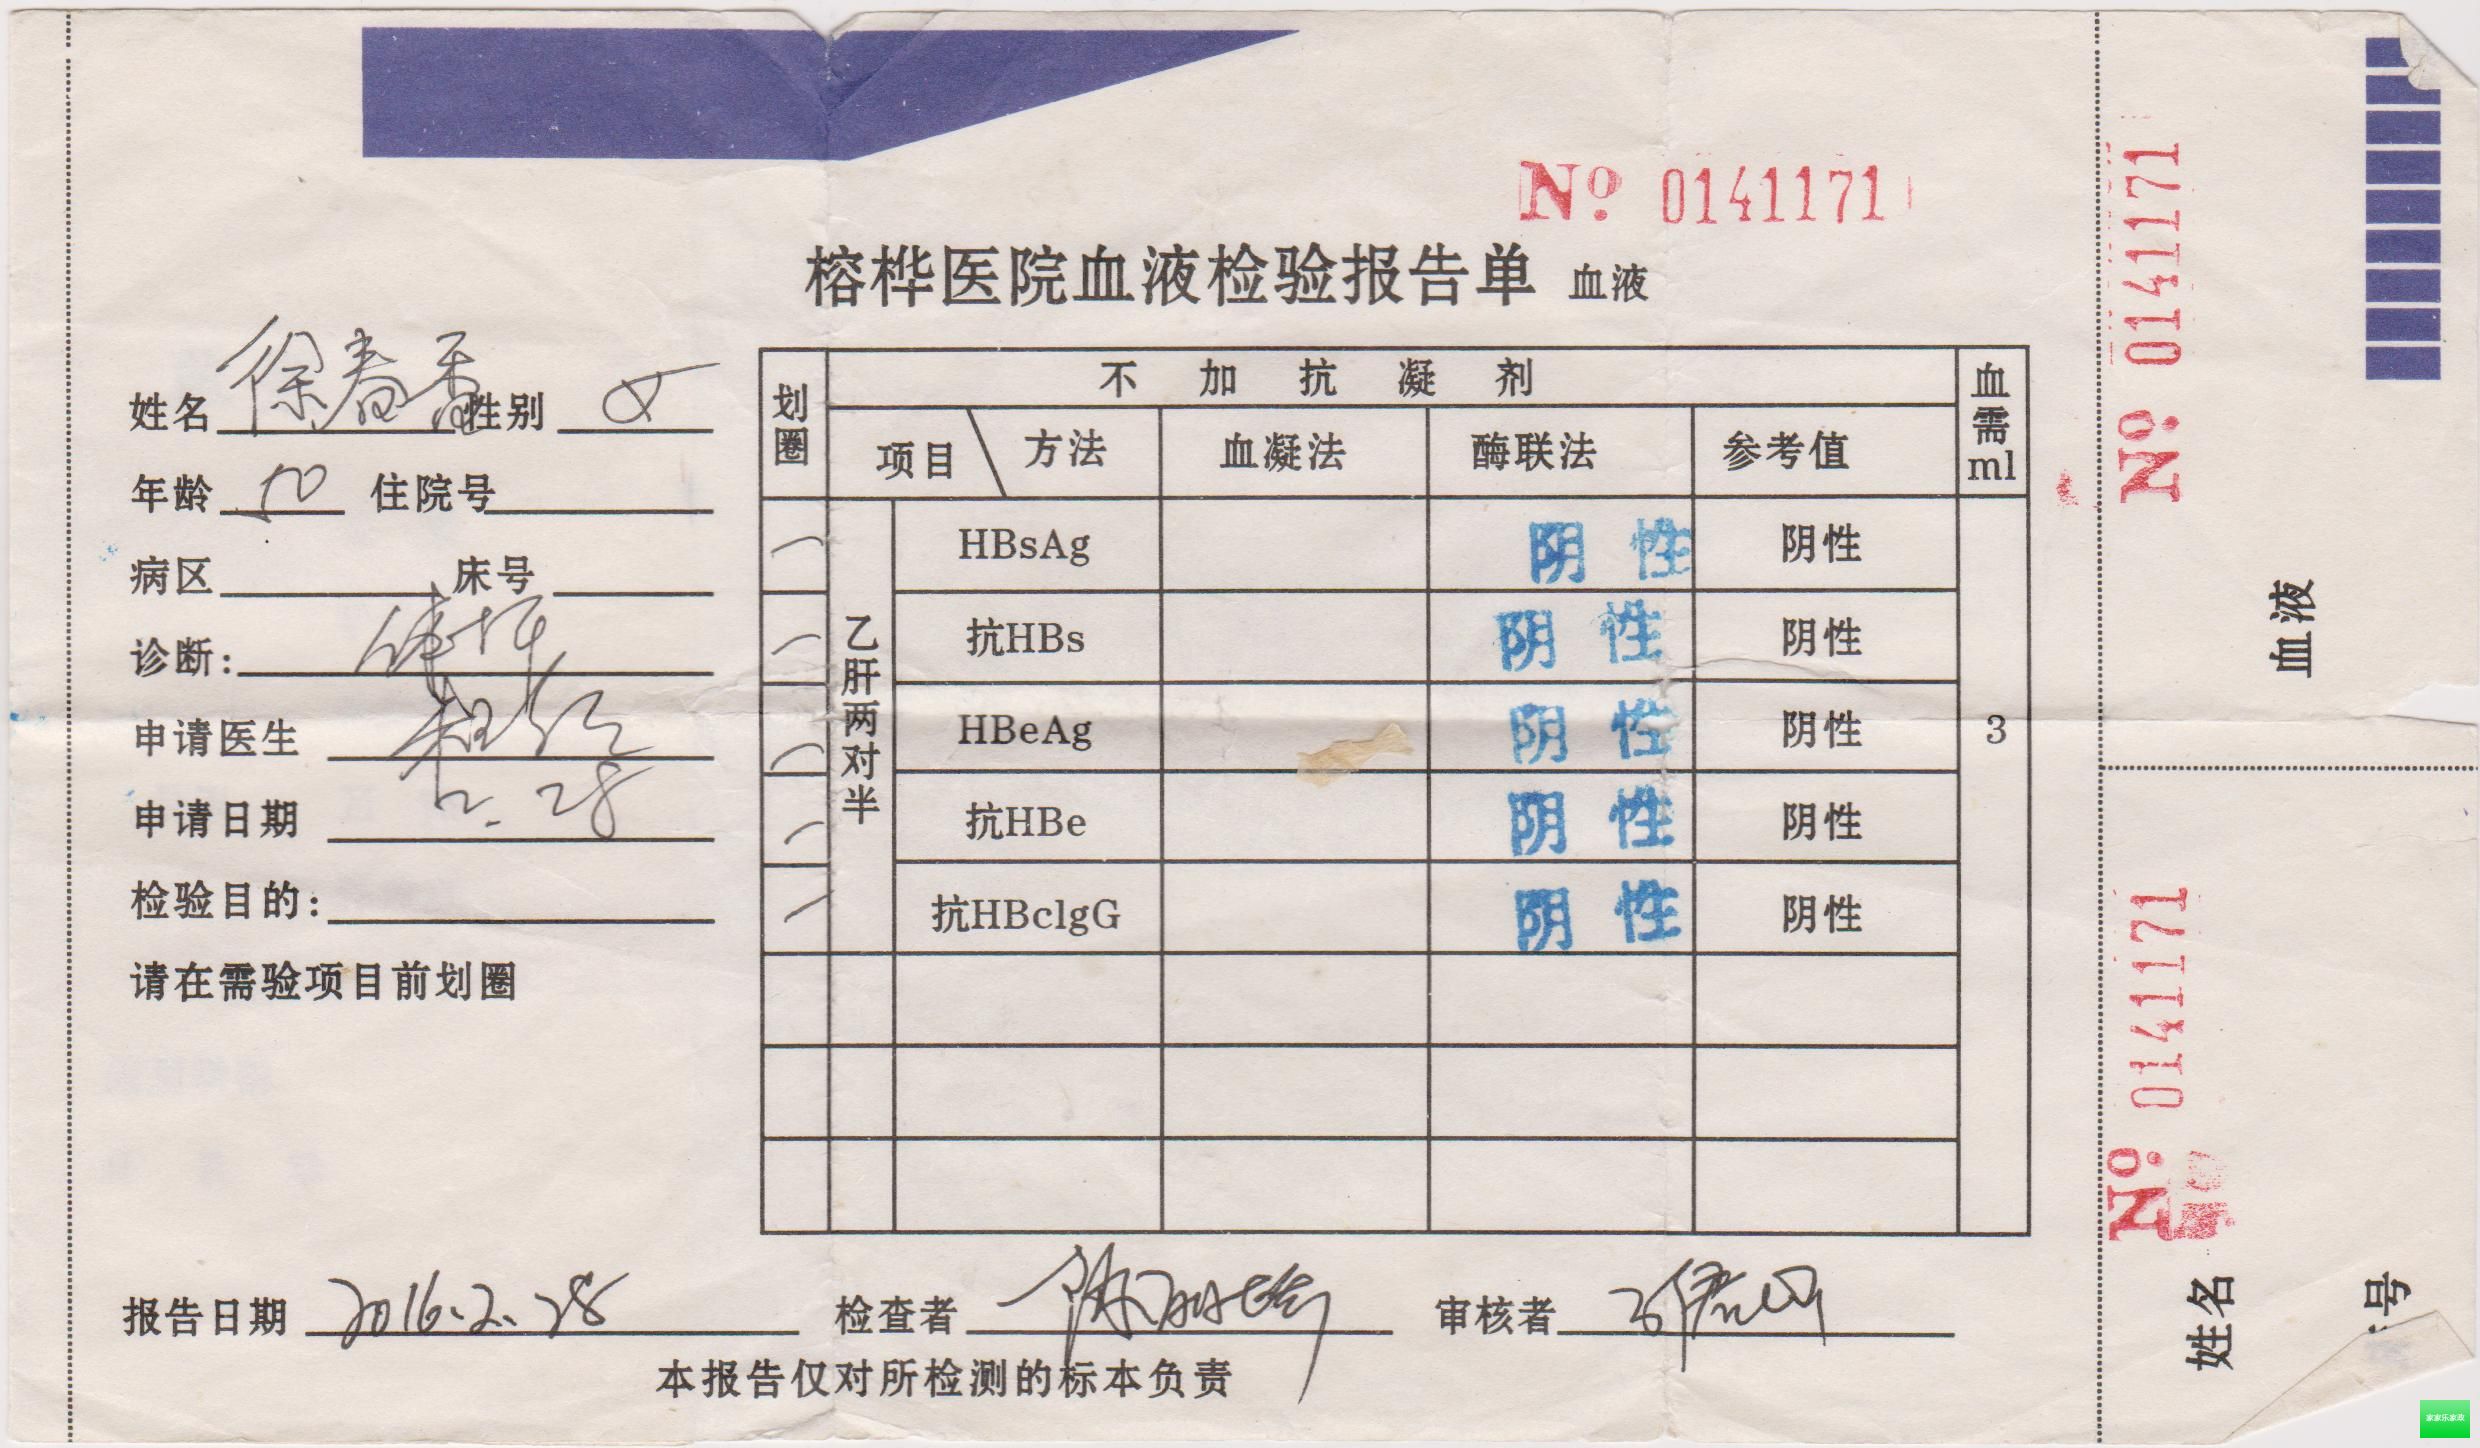 No 0141171
榕桦医院血液检验报告单 血液
姓名 徐春香 性别 女
年龄 50 住院号
病区 床号
诊断: 健康
申请医生
申请日期 2.28
检验目的:
请在需验项目前划圈
划圈 不加抗凝剂 血需ml
项目 方法 血凝法 酶联法 参考值
乙肝两对半
HBsAg 阴性 阴性
抗HBs 阴性 阴性
HBeAg 阴性 阴性 3
抗HBe 阴性 阴性
抗HBclgG 阴性 阴性
报告日期 2016.2.28 检查者 审核者
本报告仅对所检测的标本负责
No 0141171
血液
No 0141171
姓名
号
家家乐家政